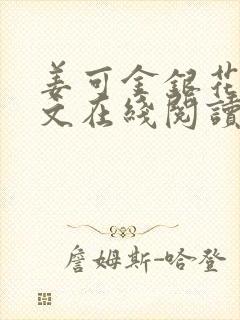 姜可金銀花
文在綫閱讀
詹姆斯-哈登